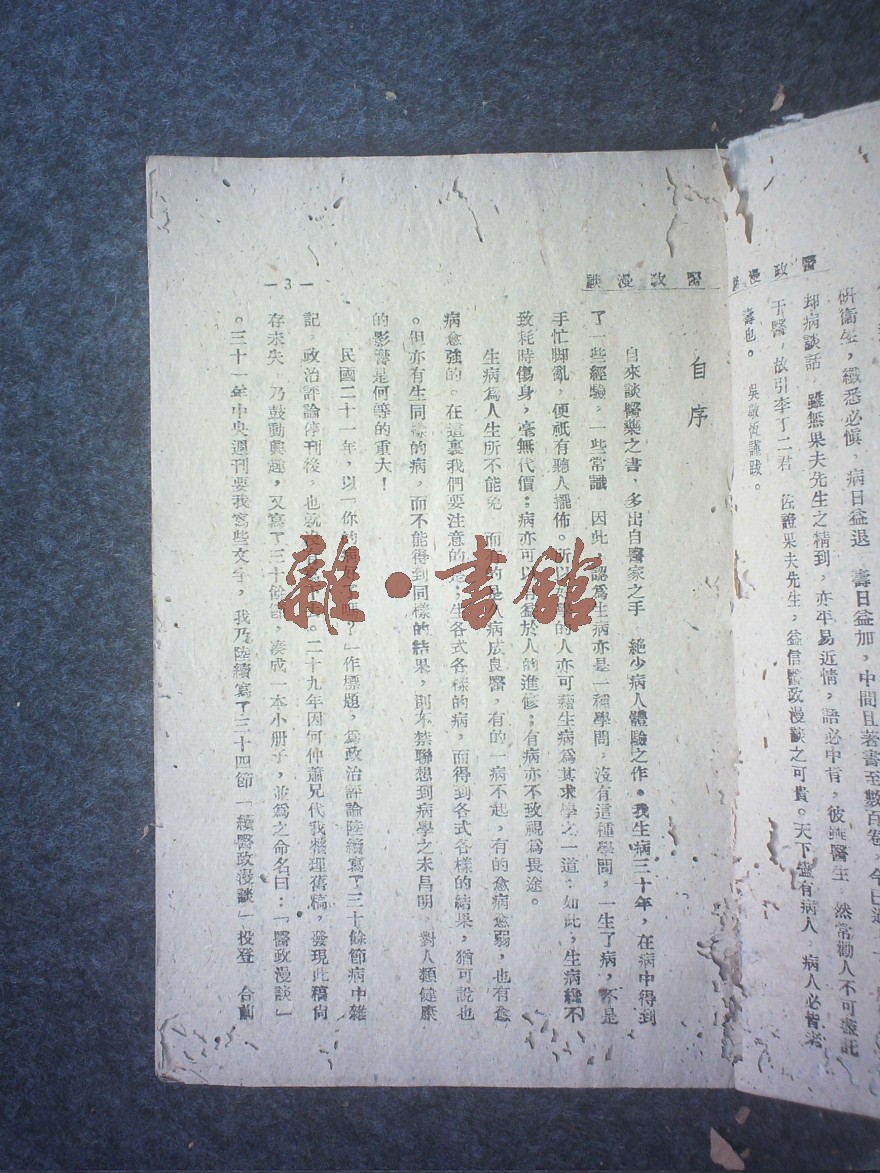 醫政漫
研衛生,纖悉必愼,病日益退,壽日益加,中間且著書至數百卷,今已
却病談話,雖無果夫先生之精到,亦平易近情,語必中肯,彼雖醫生,然常勸人不可盡託
于醫,故引李丁二君,佐證果夫先生,益信醫政漫談之可貴。天下儘有病人,病人必皆老
壽也。 吳敬恆謹跋。
醫政漫談
自序
自來談醫藥之書,多出自醫家之手,絕少病人體驗之作。我生病三十年,在病中得到
了一些經驗,一些常識,因此,認爲生病亦是一種學問,沒有這種學問,一生了病,不是
手忙脚亂,便祇有聽人擺佈。所以 的人亦可藉生病爲其求學之一道;如此,生病纔不
致耗時傷身,毫無代價;病亦可以 益於人的進修;有病亦不致視爲畏途。
生病爲人生所不能免,而有的是久病成良醫,有的一病不起,有的愈病愈弱,也有愈
病愈強的。在這裏我們要注意的是;生各式各樣的病,而得到各式各樣的結果,猶可說也
。但亦有生同樣的病,而不能得到同樣的結果,則不禁聯想到病學之未昌明,對人類健康
的影響是何等的重大!
民國二十一年,以「你的病 嗎?」作標題,爲政治評論陸續寫了三十餘節病中雜
記,政治評論停刊後,也就沒有 。二十九年因何仲蕭兄代我整理舊稿,發現此稿尙
存未失,乃鼓動興趣,又寫了三十餘節,湊成一本小册子,並爲之命名曰:「醫政漫談」
。三十一年中央週刊要我寫些文字,我乃陸續寫了三十四節「續醫政漫談」,投登,合前
—3—
雜·書館